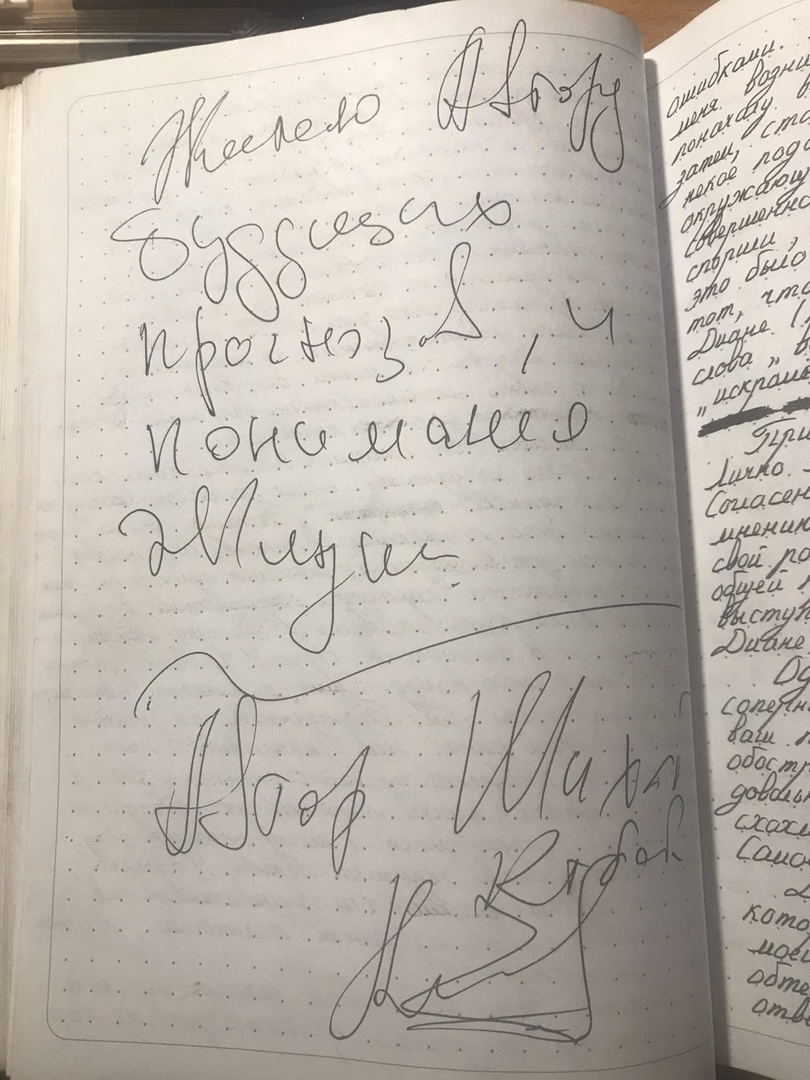 Желаю Автору
будущих
прогнозов, и
понимания
Жизни.
Автор
ошибками.
меня возни
поначалу в
затем, ста
некое подо
окружающ
совершенно
спорили,
это было
тот, что
Диане
слова „ в
„искрам
При
Лично
Согласен
мнению
свой ро
общей
выступ
Диане
Од
соперн
ваш п
обостр
доволь
схожи
Само
кото
моей
обте
отве